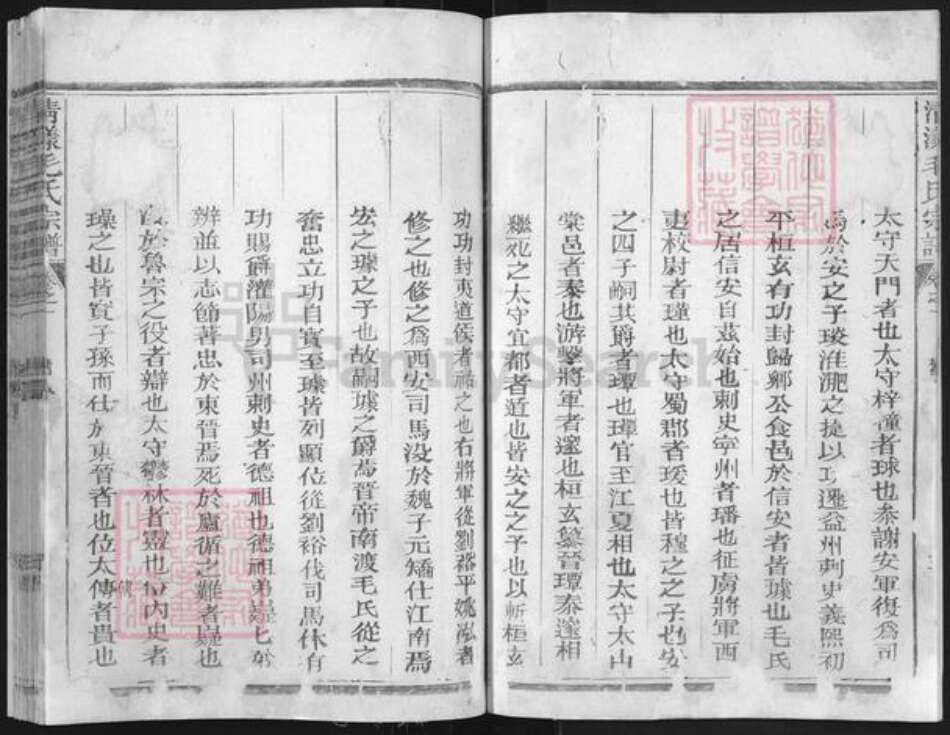 清漾毛氏宗譜
太守天門者也太守梓潼者球也叅謝安軍復爲司
馬於安之子琰淮淝之捷以功遷益州刺史義熙初
平桓玄有功封歸鄉公食邑於信安者皆璩也毛氏
之居信安自茲始也刺史寧州者璠也征虜將軍西
夷校尉者瑾也太守蜀郡者瑗也皆穆之之子也安
之四子嗣其爵者潭也璋官至江夏相也太守太山
棠邑者泰也游擊將軍者邃也桓玄簒晉潭泰邃相
繼死之太守宜都者遁也皆安之之子也以斬桓玄
功功封夷道侯者祐之也右將軍從劉裕平姚泓者
修之也修之爲西安司馬没於魏子元矯仕江南焉
宏之璩之子也故嗣璩之爵焉晉帝南渡毛氏從之
奮忠立功自寳至璩皆列顯位從劉裕伐司馬休有
功賜爵灌陽男司州刺史者德祖也德祖弟嶷七弟
辨並以志節著忠於東晉焉死於盧循之難者嶷也
没於魯宗之役者辯也太守鬱林者靈也位内史者
璪之也皆寳子孫而仕於東晉者也位太傅者貴也
清漾毛氏宗譜
FamilySearch